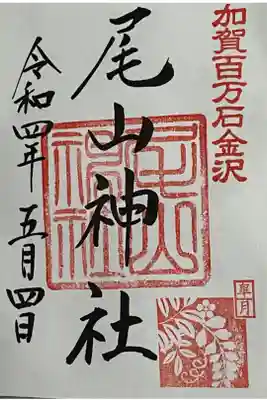 加賀百万石金沢
尾山神社
尾山神社
皐月
令和四年五月四日